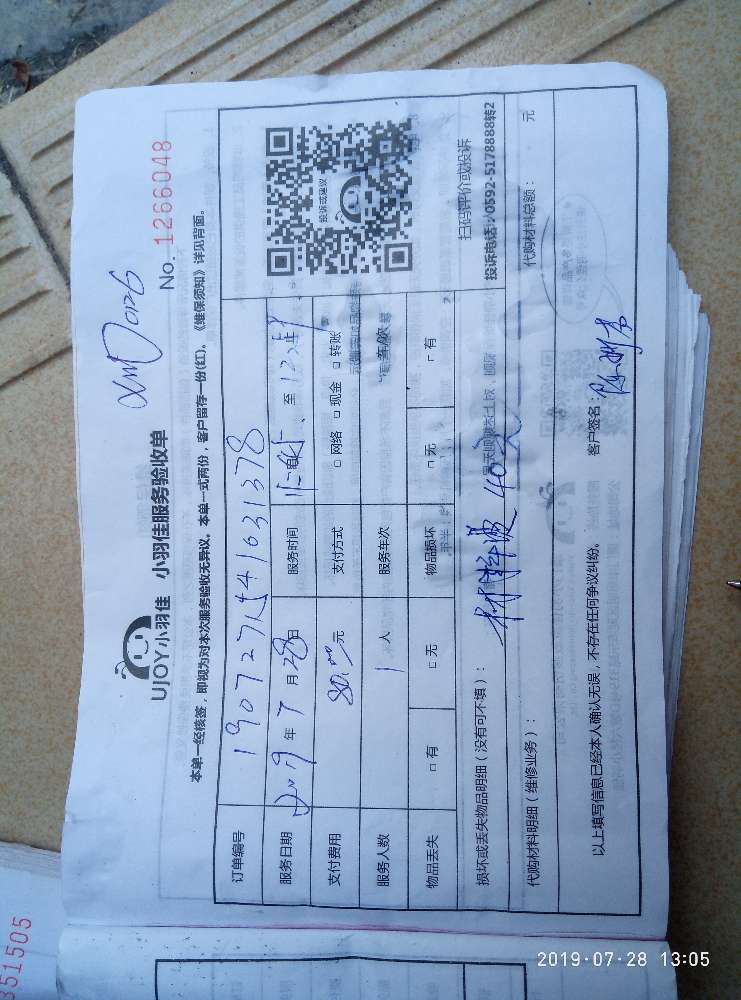 XMJ0126
No. 1266048
UJOY小羽佳 小羽佳服务验收单
本单一经核签，即视为对本次服务验收无异议。本单一式两份，客户留存一份(红)。《维保须知》详见背面。
订单编号
服务日期 2019 年 7 月 28 日 服务时间 至 12
支付费用 80.00 元 支付方式 □ 网络 □ 现金 □ 转账
服务人数 1 人 服务车次
物品丢失 □ 有 □ 无 物品损坏 □ 无 □ 有
投诉或建议
扫码评价或投诉
投诉电话：0592-5178888转2
损坏或丢失物品明细（没有可不填）：
材料费 40元
代购材料明细（维修业务）：
代购材料总额： 元
以上填写信息已经本人确认无误，不存在任何争议纠纷。 客户签名：
351505
2019·07·28 13:05